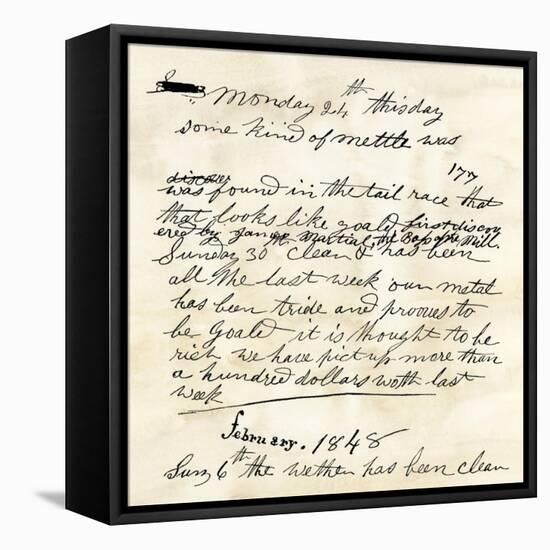 Monday 24th this day
some kind of mettle was
discover
was found in the tail race that
that looks like goald first discov
ered by James Martial, the Boss of the Mill.
Sunday 30th clean & has been
all the last week our metal
has been tride and prooves to
be goald it is thought to be
rich we have pict up more than
a hundred dollars woth last
week
february. 1848
Sun 6th the wether has been clean